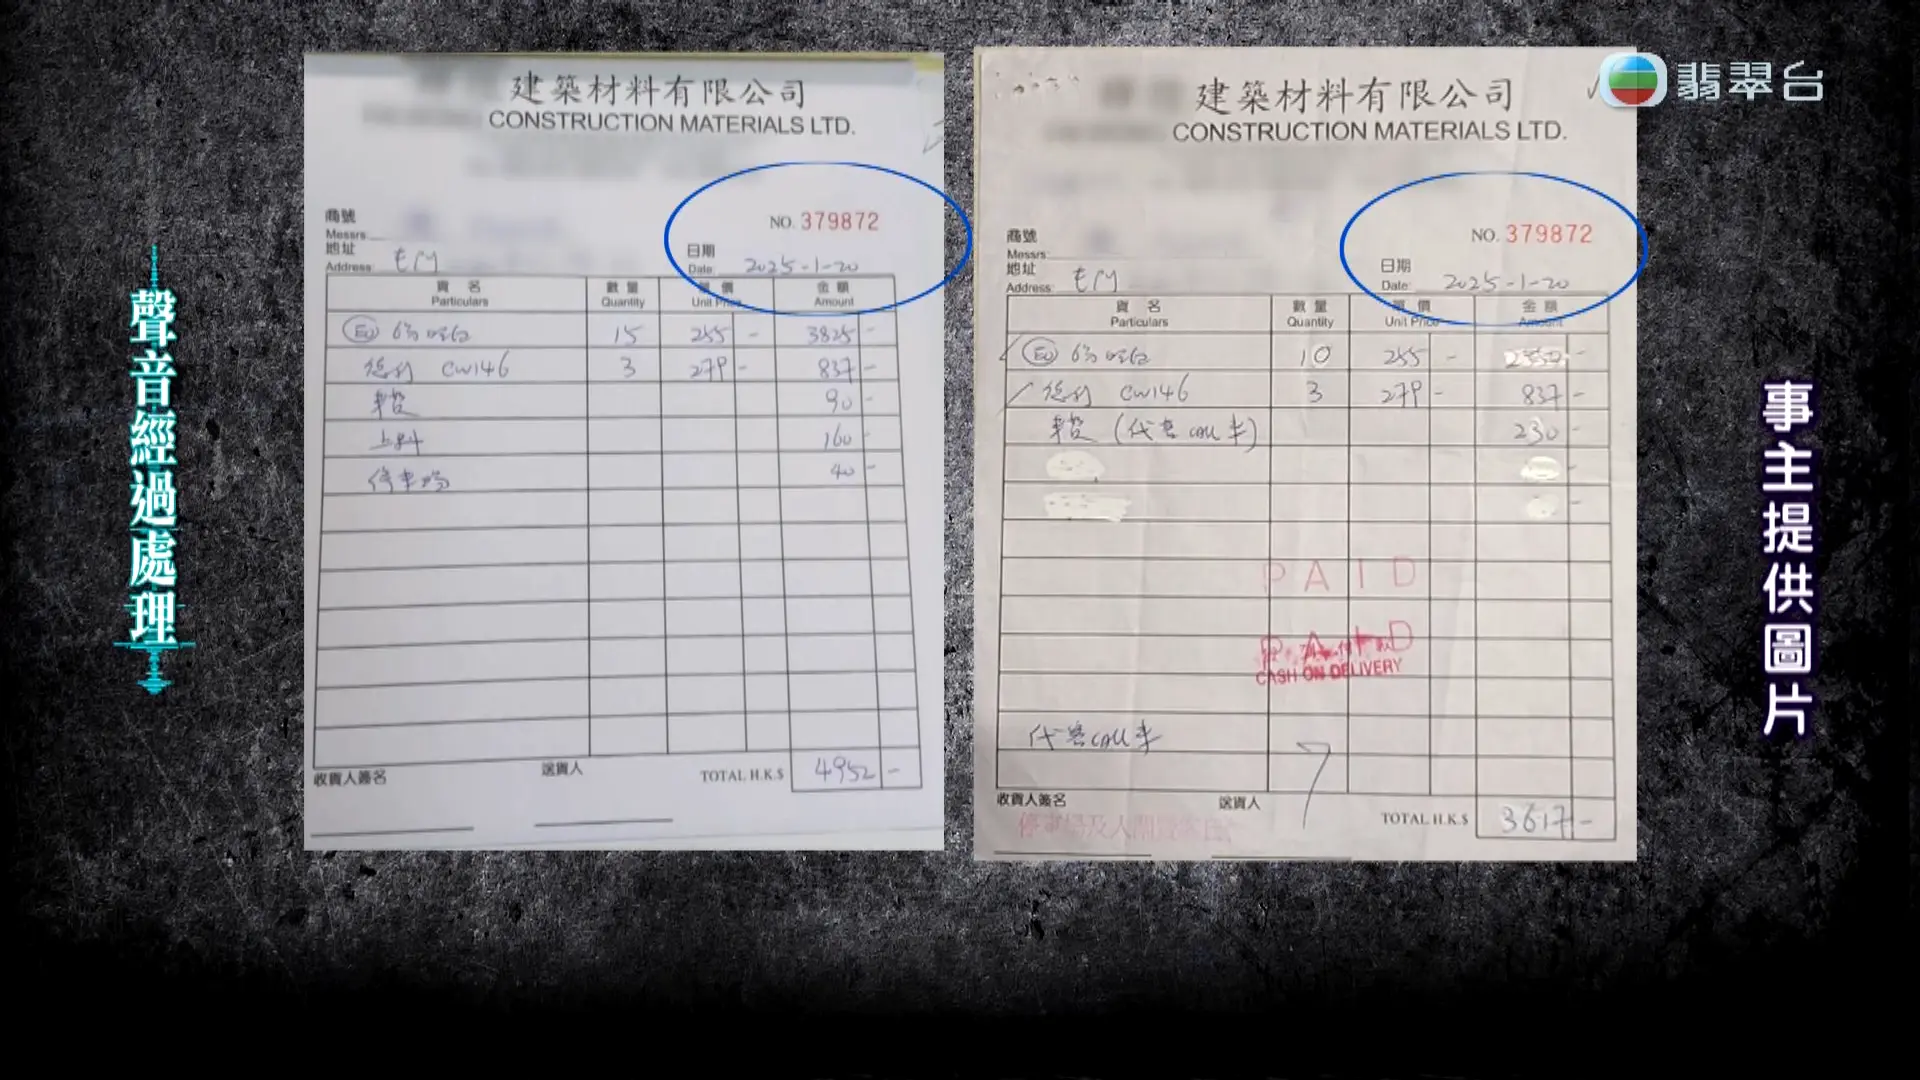 翡翠台
聲音經過處理
事主提供圖片
建築材料有限公司
CONSTRUCTION MATERIALS LTD.
NO. 379872
商號
Messrs.
日期
Date: 2025-1-20
地址
Address: 屯門
貨名 數量 單價 金額
Particulars Quantity Unit Price Amount
15 255 - 3825 -
德利 CW146 3 279 - 837 -
車費 90 -
上料 160 -
停車場 40 -
收貨人簽名 送貨人 TOTAL H.K.$ 4952 -
建築材料有限公司
CONSTRUCTION MATERIALS LTD.
NO. 379872
商號
Messrs.
日期
Date: 2025-1-20
地址
Address: 屯門
貨名 數量 單價 金額
Particulars Quantity Unit Price Amount
10 255 - 2550 -
德利 CW146 3 279 - 837 -
車費 (代客CALL車) 230 -
PAID
PAID
CASH ON DELIVERY
代客CALL車
收貨人簽名 送貨人 TOTAL H.K.$ 3617 -